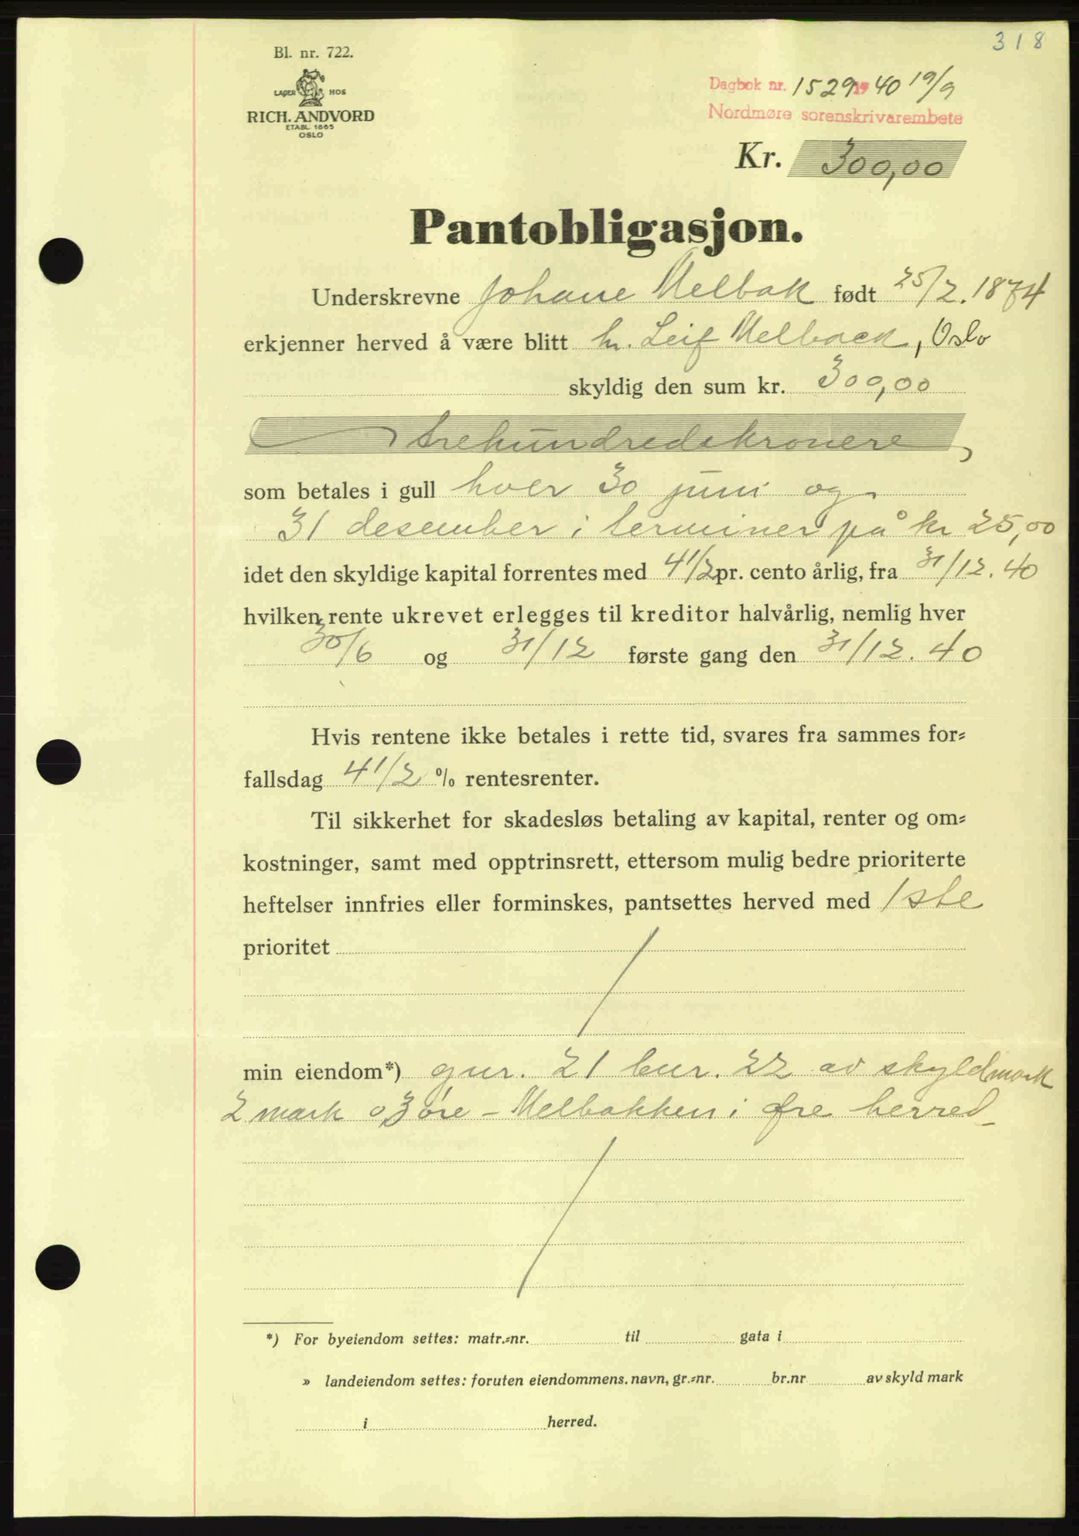 318
Bl. nr. 722.
LAGER HOS
RICH. ANDVORD
ETABL. 1865
OSLO
Dagbok nr. 1529 1940 19/9
Nordmøre sorenskrivarembete
Kr. 300,00
Pantobligasjon.
Underskrevne Johane Melbak født 25/2. 1874
erkjenner herved å være blitt hr. Leif Melback, Oslo
skyldig den sum kr. 300,00
trehundredekronere
som betales i gull hver 30 juni og
31 desember i terminer på kr 25,00
idet den skyldige kapital forrentes med 4 1/2 pr. cento årlig, fra 31/12. 40
hvilken rente ukrevet erlegges til kreditor halvårlig, nemlig hver
30/6 og 31/12 første gang den 31/12. 40
Hvis rentene ikke betales i rette tid, svares fra sammes for⸗
fallsdag 4 1/2 % rentesrenter.
Til sikkerhet for skadesløs betaling av kapital, renter og om⸗
kostninger, samt med opptrinsrett, ettersom mulig bedre prioriterte
heftelser innfries eller forminskes, pantsettes herved med 1ste
prioritet
min eiendom*) gnr. 21 bnr. 22 av skyldmark
2 mark 03 øre - Melbakken i Øre herred
*) For byeiendom settes: matr.⸗nr. til gata i
» landeiendom settes: foruten eiendommens. navn, gr.⸗nr. br.nr av skyld mark
i herred.